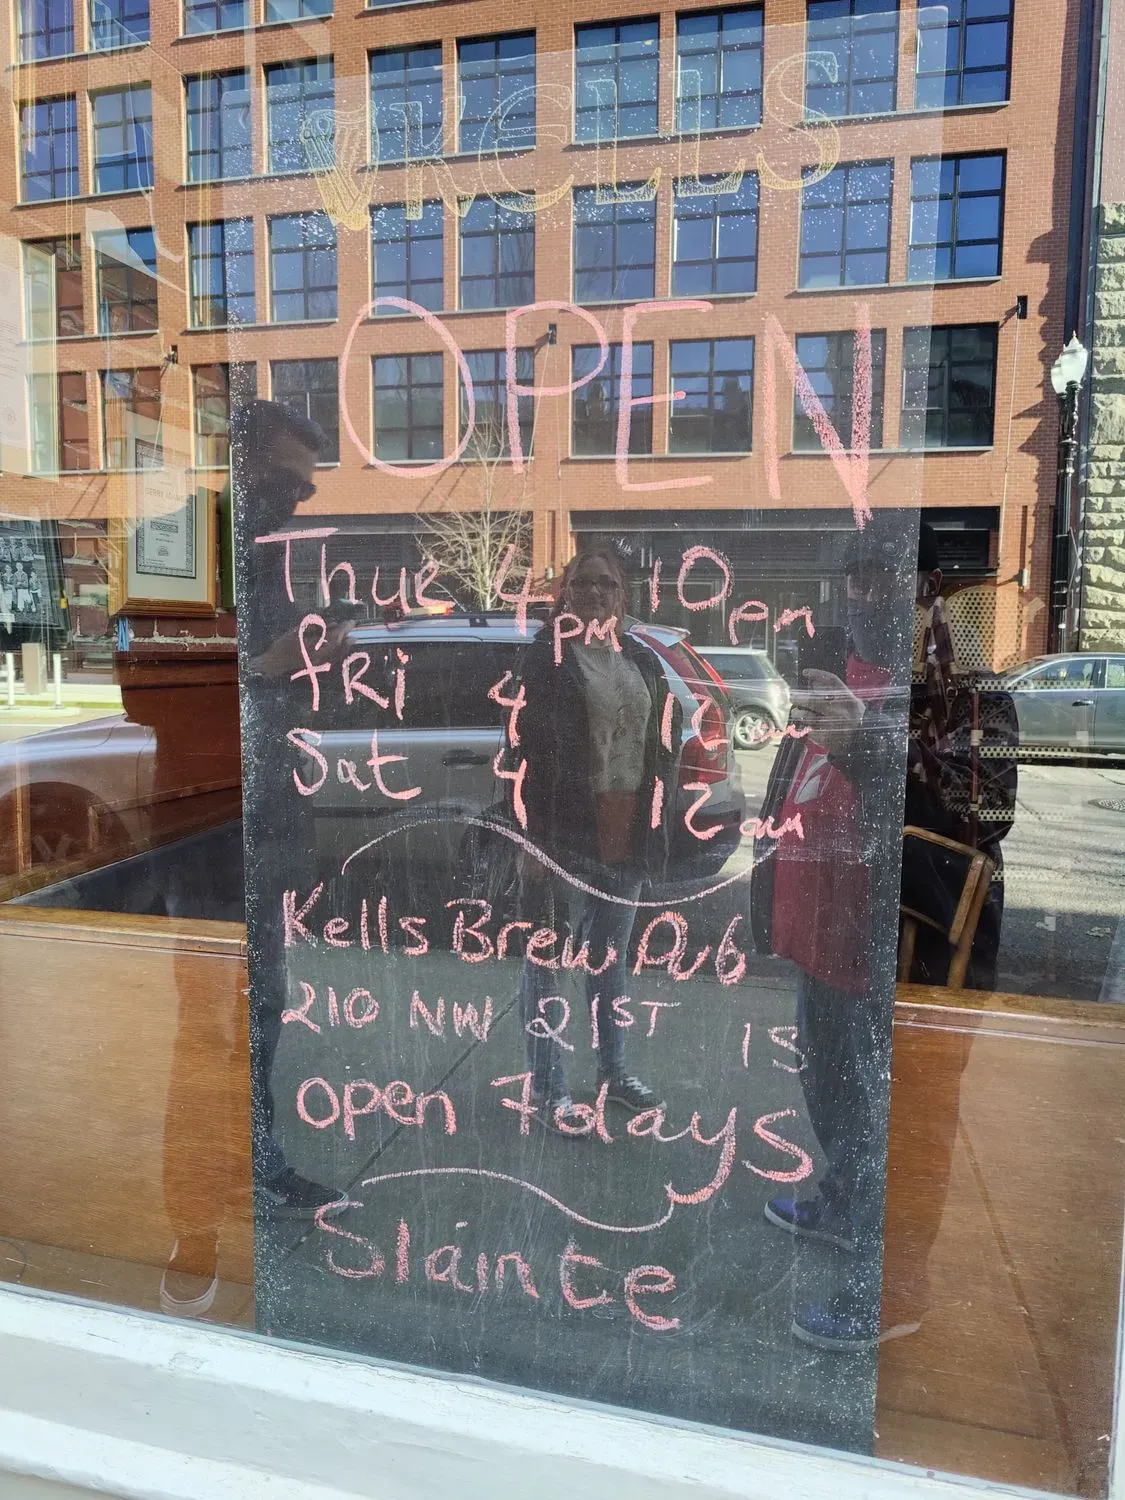 KELLS
OPEN
Thur 4 pm 10 pm
fRi 4 12 am
Sat 4 12 am
Kells Brew Pub
210 NW 21ST is
open 7 days
Sláinte